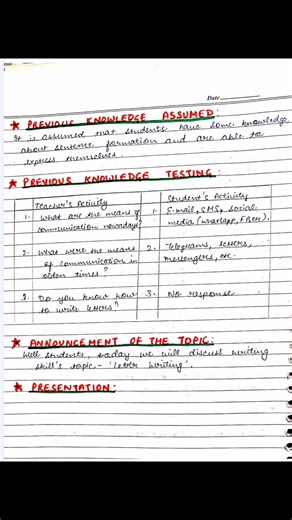 Date
★ PREVIOUS KNOWLEDGE ASSUMED:
It is assumed that students have some knowledge
about sentence formation and are able to
express themselves
★ PREVIOUS KNOWLEDGE TESTING:
Teacher's Activity
Student's Activity
1. What are the means of
communication nowadays?
1. E-mail, SMS, social
media (whatsapp, FB etc).
2. What were the means
of communication in
olden times?
2. Telegrams, letters,
messengers, etc.
3. Do you know how
to write letters?
3. No response
★ ANNOUNCEMENT OF THE TOPIC:
Well students, today we will discuss writing
skill's topic - 'letter writing'.
★ PRESENTATION: